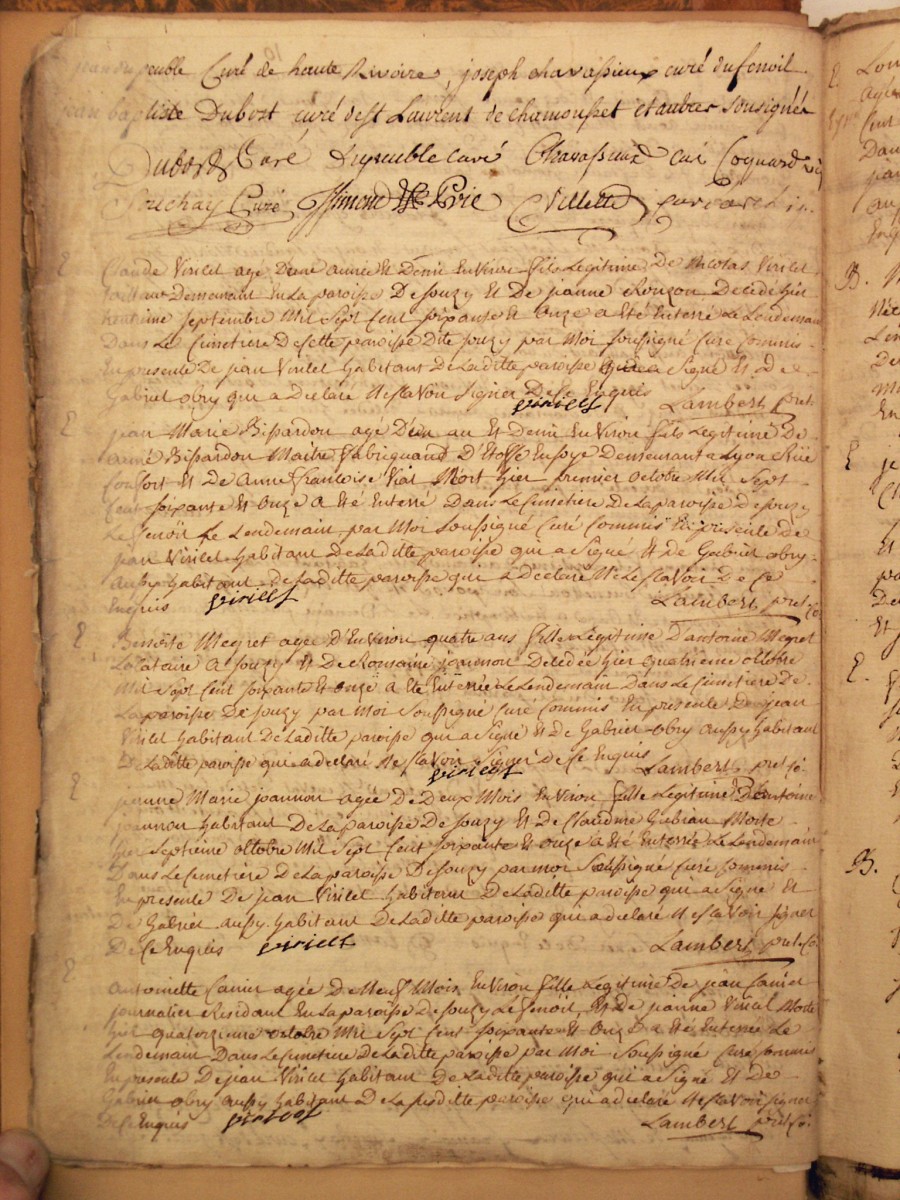 peuble Curé de haute Rivoire, joseph chavassieux curé dufenoil
baptiste Dubost curé dest Laurent de chamousset et autres sousignés
Dubost Curé Dupeuble curé Chavassieux curé Coquard
Souchay Curé Simond Prie Villette
E Claude Virilet agé Dune année Et Demi Environ fils Legitime De Nicolas Virilet
Demeurant En La paroisse De souzy Et De jeanne Rouzon Decedé hier
septembre Mil Sept Cent soixante Et Onze a Eté Enterré Le Lendemain
Dans Le Cimetiere De cette paroisse Dite souzy par Moi soussigné Curé Commis
En presente De jean Virilet habitant De Laditte paroisse qui a Signé Et De
Gabriel obry qui a declaré Ne sçavoir Signer De Ce Enquis
virillet Lambert pret
E jean Marie Bissardon agé D'un an Et Demi Environ fils Legitime De
aimé Bissardon Maitre fabriquand D'Etoffe En soye Demeurant a Lyon Rüe
Confort Et De Anne Françoise Vial Mort hier premier octobre Mil Sept
Cent soixante Et Onze a Eté Enterré Dans Le Cimetiere De La paroisse De souzy
Le Lendemain par Moi soussigné Curé Commis En presente De
jean Virilet habitant De Laditte paroisse qui a Signé Et De Gabriel obry
aussy habitant De Laditte paroisse qui a declaré Ne Le sçavoir De Ce
Enquis virillet Lambert pret Co.
E Benoite Megret agée D'Environ quatre ans fille Legitime D'antoine Megret
a souzy Et De Romaine joannon Decedée hier quatrieme octobre
Mil Sept Cent soixante Et Onze a Eté Enterrée Le Lendemain Dans Le Cimetiere De
La paroisse De souzy par Moi soussigné Curé Commis En presente De jean
Virilet habitant De Laditte paroisse qui a Signé Et De Gabriel obry aussy habitant
De Laditte paroisse qui a declaré Ne sçavoir Signer De Ce Enquis
virillet Lambert pret Co.
E jeanne Marie joannon agée De Deux Mois Environ fille Legitime D'antoine
joannon habitant De La paroisse De souzy Et De Claudine Morte
hier Septieme octobre Mil Sept Cent soixante Et Onze a Eté Enterrée Le Lendemain
Dans Le Cimetiere De La paroisse De souzy par moi soussigné Curé Commis
En presente De jean Virilet habitant De Laditte paroisse qui a Signé Et
De Gabriel aussy habitant De Laditte paroisse qui a declaré Ne sçavoir signer
De Ce Enquis virillet Lambert pret Co.
E Antoinette agée De Neuf Mois Environ fille Legitime De jean
journalier Residant En La paroisse De souzy Et De jeanne Morte
hier quatorzieme octobre Mil Sept Cent soixante Et Onze a Eté Enterrée Le
Lendemain Dans Le Cimetiere De Laditte paroisse par Moi soussigné Curé Commis
En presente De jean Virilet habitant De Laditte paroisse qui a Signé Et De
Gabriel obry aussy habitant De La susditte paroisse qui a declaré Ne sçavoir signer
De Ce Enquis virillet Lambert pret Co.
B.
E
E.
B.